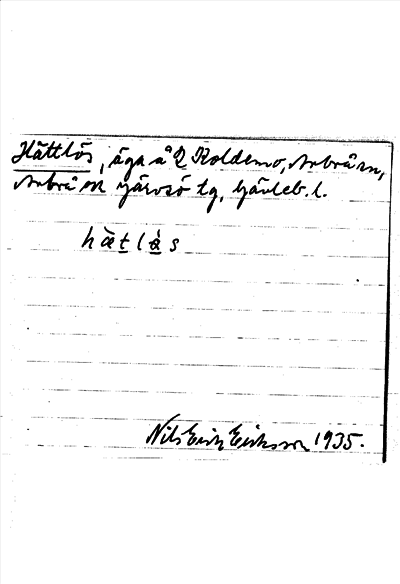 Hättlös, äga å 2 Koldemo, Arbrå sn,
Arbrå och Järvsö tg, Gävleb. l.
hæ̀tlàs
Nils Erik Eriksson 1935.